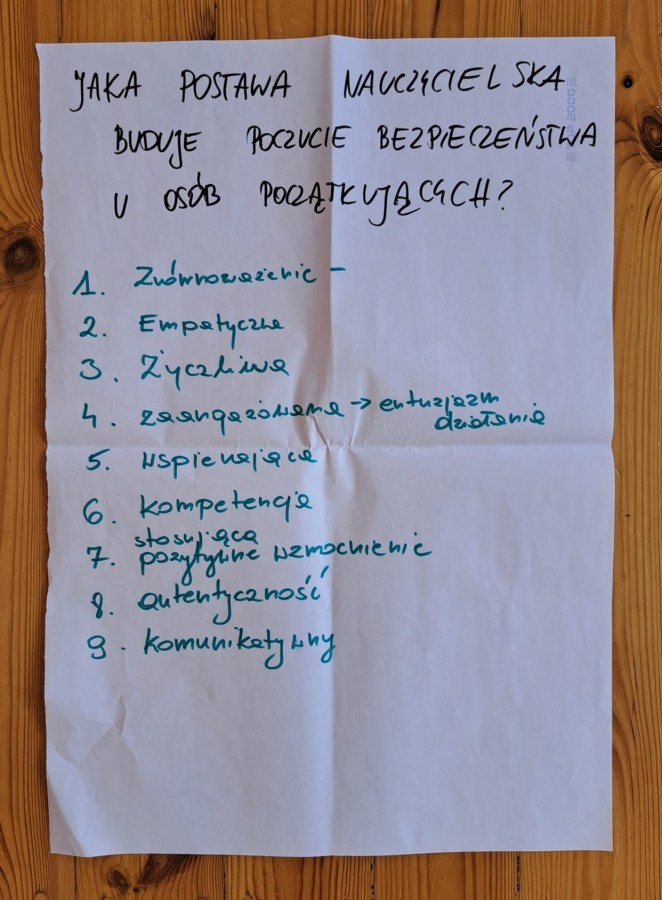 JAKA POSTAWA NAUCZYCIELSKA
BUDUJE POCZUCIE BEZPIECZEŃSTWA
U OSÓB POCZĄTKUJĄCYCH?
1. Zrównoważenie -
2. Empatyczna
3. Życzliwa
4. zaangażowana → entuzjazm
działania
5. wspierająca
6. kompetencja
stosująca
7. pozytywne wzmocnienie
8. autentyczność
9. komunikatywny